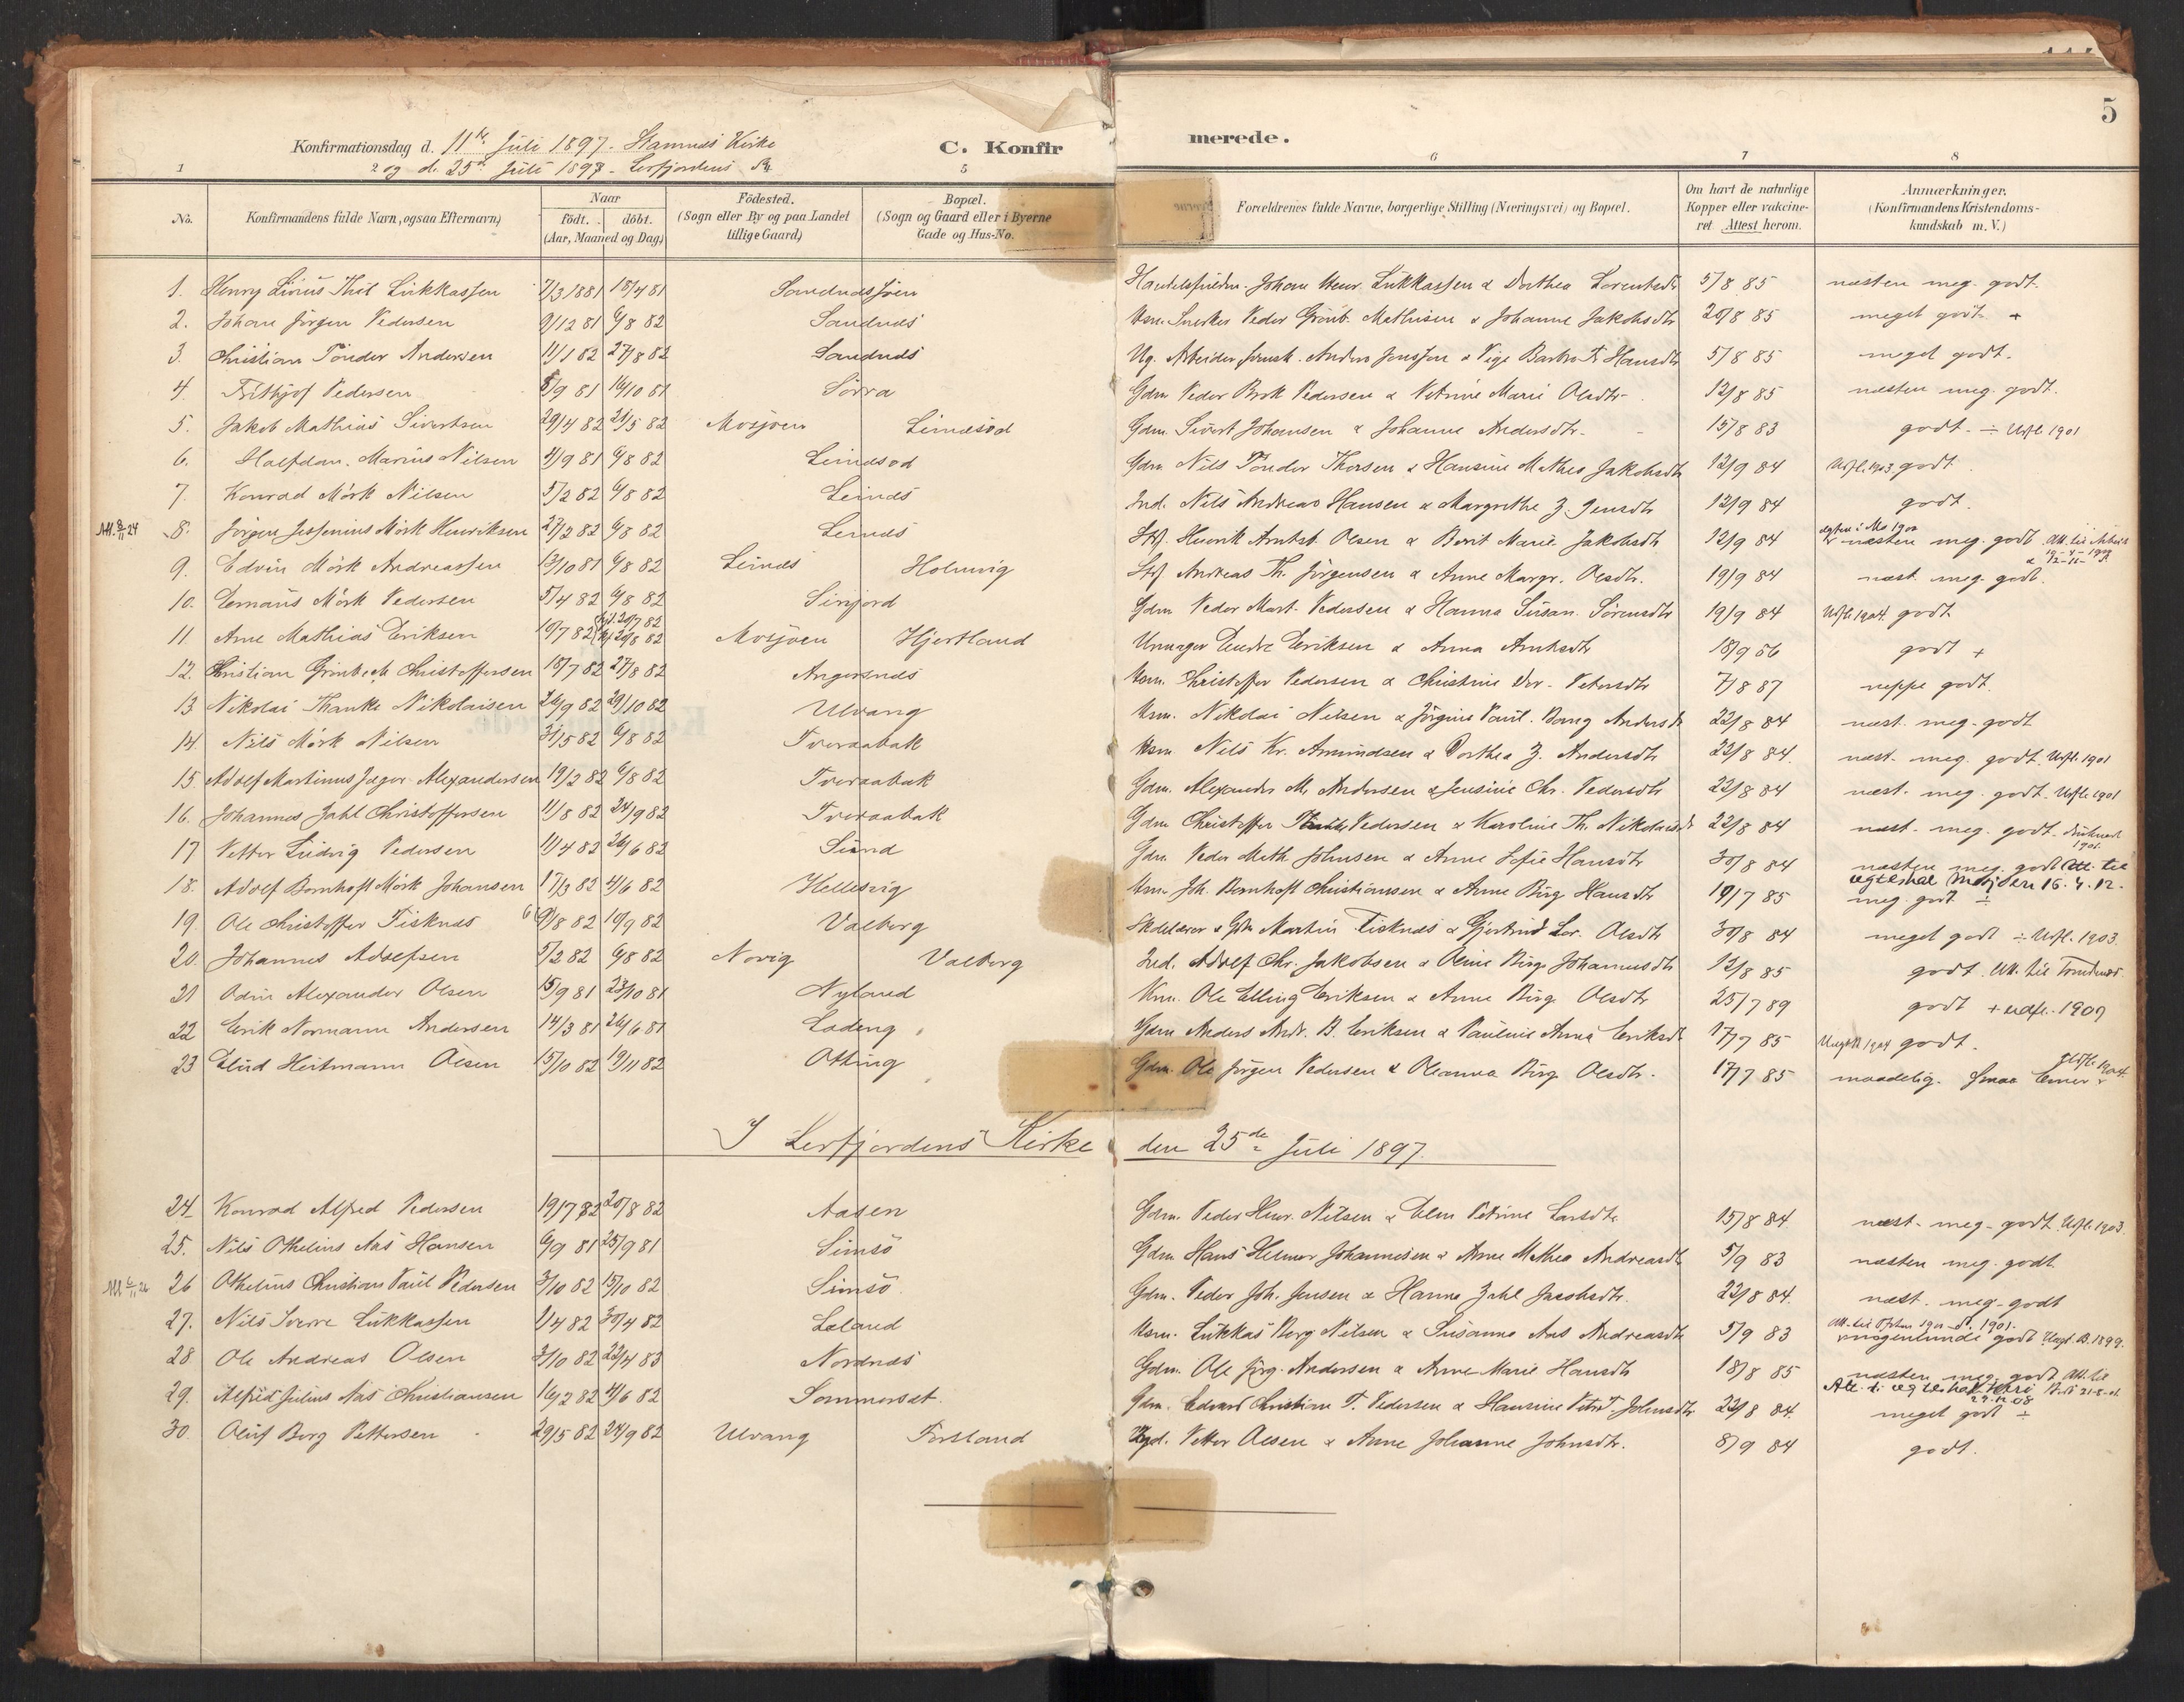 5
Konfirmationsdag d. 11te Juli 1897. Stamnes Kirke
og d. 25de Juli 1897 - Lerfjordens K.
C. Konfirmerede.
1 2 5 6 7 8
No. Konfirmandens fulde Navn, ogsaa Efternavn) Naar födt. döbt. (Aar, Maaned og Dag) Födested. (Sogn eller By og paa Landet tillige Gaard) Bopæl. (Sogn og Gaard eller i Byerne Gade og Hus-No. Forældrenes fulde Navne, borgerlige Stilling (Næringsvei) og Bopæl. Om havt de naturlige Kopper eller vaccineret Attest herom. Anmærkninger. (Konfirmandens Kristendomskundskab m. V.)
1. Henry Lukkassen 7/3 1881 18/4 81 Sandnessjöen Johan Henr. Lukkassen & Dorthea Lorentsdtr 5/8 85 næsten meg. godt.
2. Johan Jörgen Pedersen 9/12 81 6/8 82 Sandnes Snerker Peder Grönb. Mathisen & Johanne Jakobsdtr 20/8 85 meget godt +
3. Christian Tönder Andersen 11/1 82 27/8 82 Sandnes Ug. Arbeider Anders Jonssen & Pige Hansdtr 5/8 85 meget godt.
4. Frithjof Pedersen 8/9 81 16/10 81 Sörra Gdm. Peder Brok Pedersen & Petrine Marie Olsdtr 12/8 85 næsten meg. godt.
5. Jakob Mathias Sivertsen 29/4 82 21/5 82 Mosjöen Leinesod Gdm. Sivert Johansen & Johanne Andersdtr. 15/8 83 godt. ÷ Utfl. 1901
6. Halfdan Marius Nilsen 4/9 81 6/8 82 Leinesod Gdm. Nils Tönder Thorsen & Hansine Mathea Jakobsdtr 12/9 84 Utfl. 1903. godt.
7. Konrad Mörk Nilsen 5/2 82 6/8 82 Leines Ind. Nils Andreas Hansen & Margrethe Z. Jensdtr 12/9 84 godt.
8. Jörgen Jessenius Mörk Henriksen 27/2 82 6/8 82 Leines Henrik Arntst. Olsen & Berit Marie Jakobsdtr 12/9 84 næsten meg. godt.
9. Edvin Mörk Andreassen 13/10 81 6/8 82 Leines Holmvig Andreas Th. Jörgensen & Anne Margr. Olsdtr. 19/9 84 næst. meg. godt.
10. Emaus Mörk Pedersen 5/4 82 6/8 82 Sinjord Gdm. Peder Mart. Pedersen & Hanna Susan. Sörensdtr 19/9 84 Utfl. 1904. godt
11 Arne Mathias Eriksen 10/7 82 20/8 82 Mosjöen Hjertland Urmager Endre Eriksen & Anna Arntsdtr 18/9 86 godt +
12. Christian Grönbech Christoffersen 18/7 82 27/8 82 Angersnes Usm. Christoffer Pedersen & Christine Dor. Petersdtr 7/8 87 neppe godt.
13 Nikolai Thanke Nikolaisen 26/9 82 29/10 82 Ulvang Usm. Nikolai Nilsen & Jörgine Paul. Bang Andersdtr 22/8 84 næst. meg. godt
14. Nils Mörk Nilsen 31/5 82 6/8 82 Tveraabak Usm. Nils Kr. Amundsen & Dorthea Z. Andersdtr 22/8 84. næst. meg. godt. Utfl. 1901
15. Adolf Martinus Jæger Alexandersen 19/2 82 6/8 82 Tveraabak Gdm. Alexander M. Andersen & Jensine Chr. Pedersdtr 22/8 84 næst. meg. godt. Utfl. 1901
16. Johannes Jahl Christoffersen 11/8 82 24/9 82 Tveraabak Gdm. Christoffer Pedersen & Karoline Th. Nikolaisdtr 22/8 84 næst. meg. godt. 1901.
17 Petter Ludvig Pedersen 11/4 82 26/6 82 Sund Gdm. Peder Meth Johnsen & Anne Sofie Hansdtr 30/8 84 næsten meg. godt Att. til egteskab Mosjöen 16.4.12.
18. Adolf Bernhoft Mörk Johansen 17/3 82 4/6 82 Hellesvig Usm. Joh. Bernhoft Christiansen & Anne Birg Hansdtr 19/7 85 meg. godt ÷
19. Ole Christoffer Fisknes 9/8 82 10/9 82 Valberg Skolelærer & Gdm Martin Fisknes & Gjertrud Lor. Olsdtr 30/8 84 meget godt ÷ Utfl. 1903.
20. Johannes Adolfsen 5/2 82 6/8 82 Norvig Valberg Ind. Adolf Chr. Jakobsen & Oline Birg. Johannesdtr 12/8 85 godt.
21 Odin Alexander Olsen 15/9 81 23/10 81 Nyland Usm. Ole Elling Eriksen & Anne Birg. Olsdtr 25/7 89 godt + utfl. 1907
22 Erik Normann Andersen 14/3 81 26/6 81 Ladeng Gdm. Anders Andr. B. Eriksen & Pauline Anna Eriksdtr 17/7 85 godt.
23 Elud Heitmann Olsen 15/10 82 19/11 82 Otting Gdm. Ole Jörgen Pedersen & Oleanna Birg Olsdtr. 17/7 85 maadelig. Smaa Evner Utfl. 1904.
I Lerfjordens Kirke den 25de Juli 1897.
24. Konrad Alfred Pedersen 19/7 82 20/8 82 Aasen Gdm. Peder Henr. Nilsen & Elen Petrine Larsdtr 15/8 84. næst. meg. godt. Utfl. 1903.
25. Nils Othelius Aas Hansen 6/9 81 25/9 81 Simsö Gdm. Hans Helmer Johannesen & Anne Mathea Andreasdtr 5/9 83 næsten meg. godt
26 Othelius Christian Paul Pedersen 3/10 82 15/10 82 Simsö. Gdm. Peder Joh. Jensen & Hanna Zahl Jacobsdtr. 22/8 84. næst. meg. godt
27. Nils Sverre Lukkassen 1/4 82 30/4 82 Leland Usm. Lukkas Berg Nilsen & Susanna Aas Andreasdtr 5/9 83 nogenlunde godt
28 Ole Andreas Olsen 3/10 82 22/4 83 Nordnes Gdm. Ole Jörg. Andersen & Anne Marie Hansdtr 18/8 85 næsten meg. godt
29. Alfred Julius Aas Christiansen 16/2 82 4/6 82 Sommerset. Gdm. Edvard Christian T. Pedersen & Hansine Petr. T. Johnsdtr. 22/8 84. meget godt ÷
30. Oluf Berg Pettersen 29/5 82 24/9 82 Ulvang Forsland Petter Olsen & Anne Johanne Johnsdtr. 8/9 84 godt.